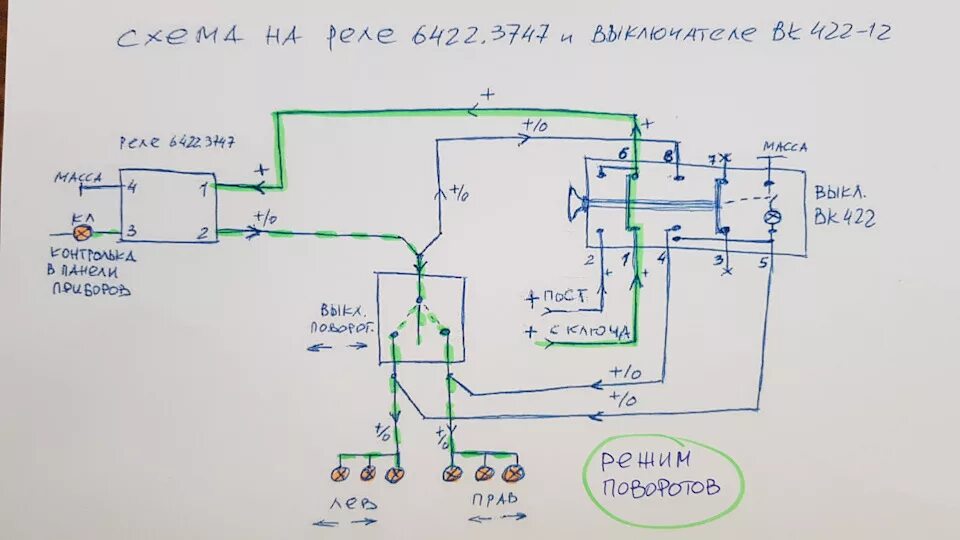 СХЕМА НА РЕЛЕ 6422.3747 И ВЫКЛЮЧАТЕЛЕ ВК 422-12
+
+/0
+
РЕЛЕ 6422.3747
МАССА
4
1
+
КЛ
3
2
+/0
КОНТРОЛЬКА
В ПАНЕЛИ
ПРИБОРОВ
+/0
6
8
7
МАССА
ВЫКЛ.
ВК 422
2
1
4
3
5
+ ПОСТ.
+
+
+ С КЛЮЧА
ВЫКЛ.
ПОВОРОТ.
+/0
+/0
+/0
+/0
ЛЕВ
ПРАВ
РЕЖИМ
ПОВОРОТОВ